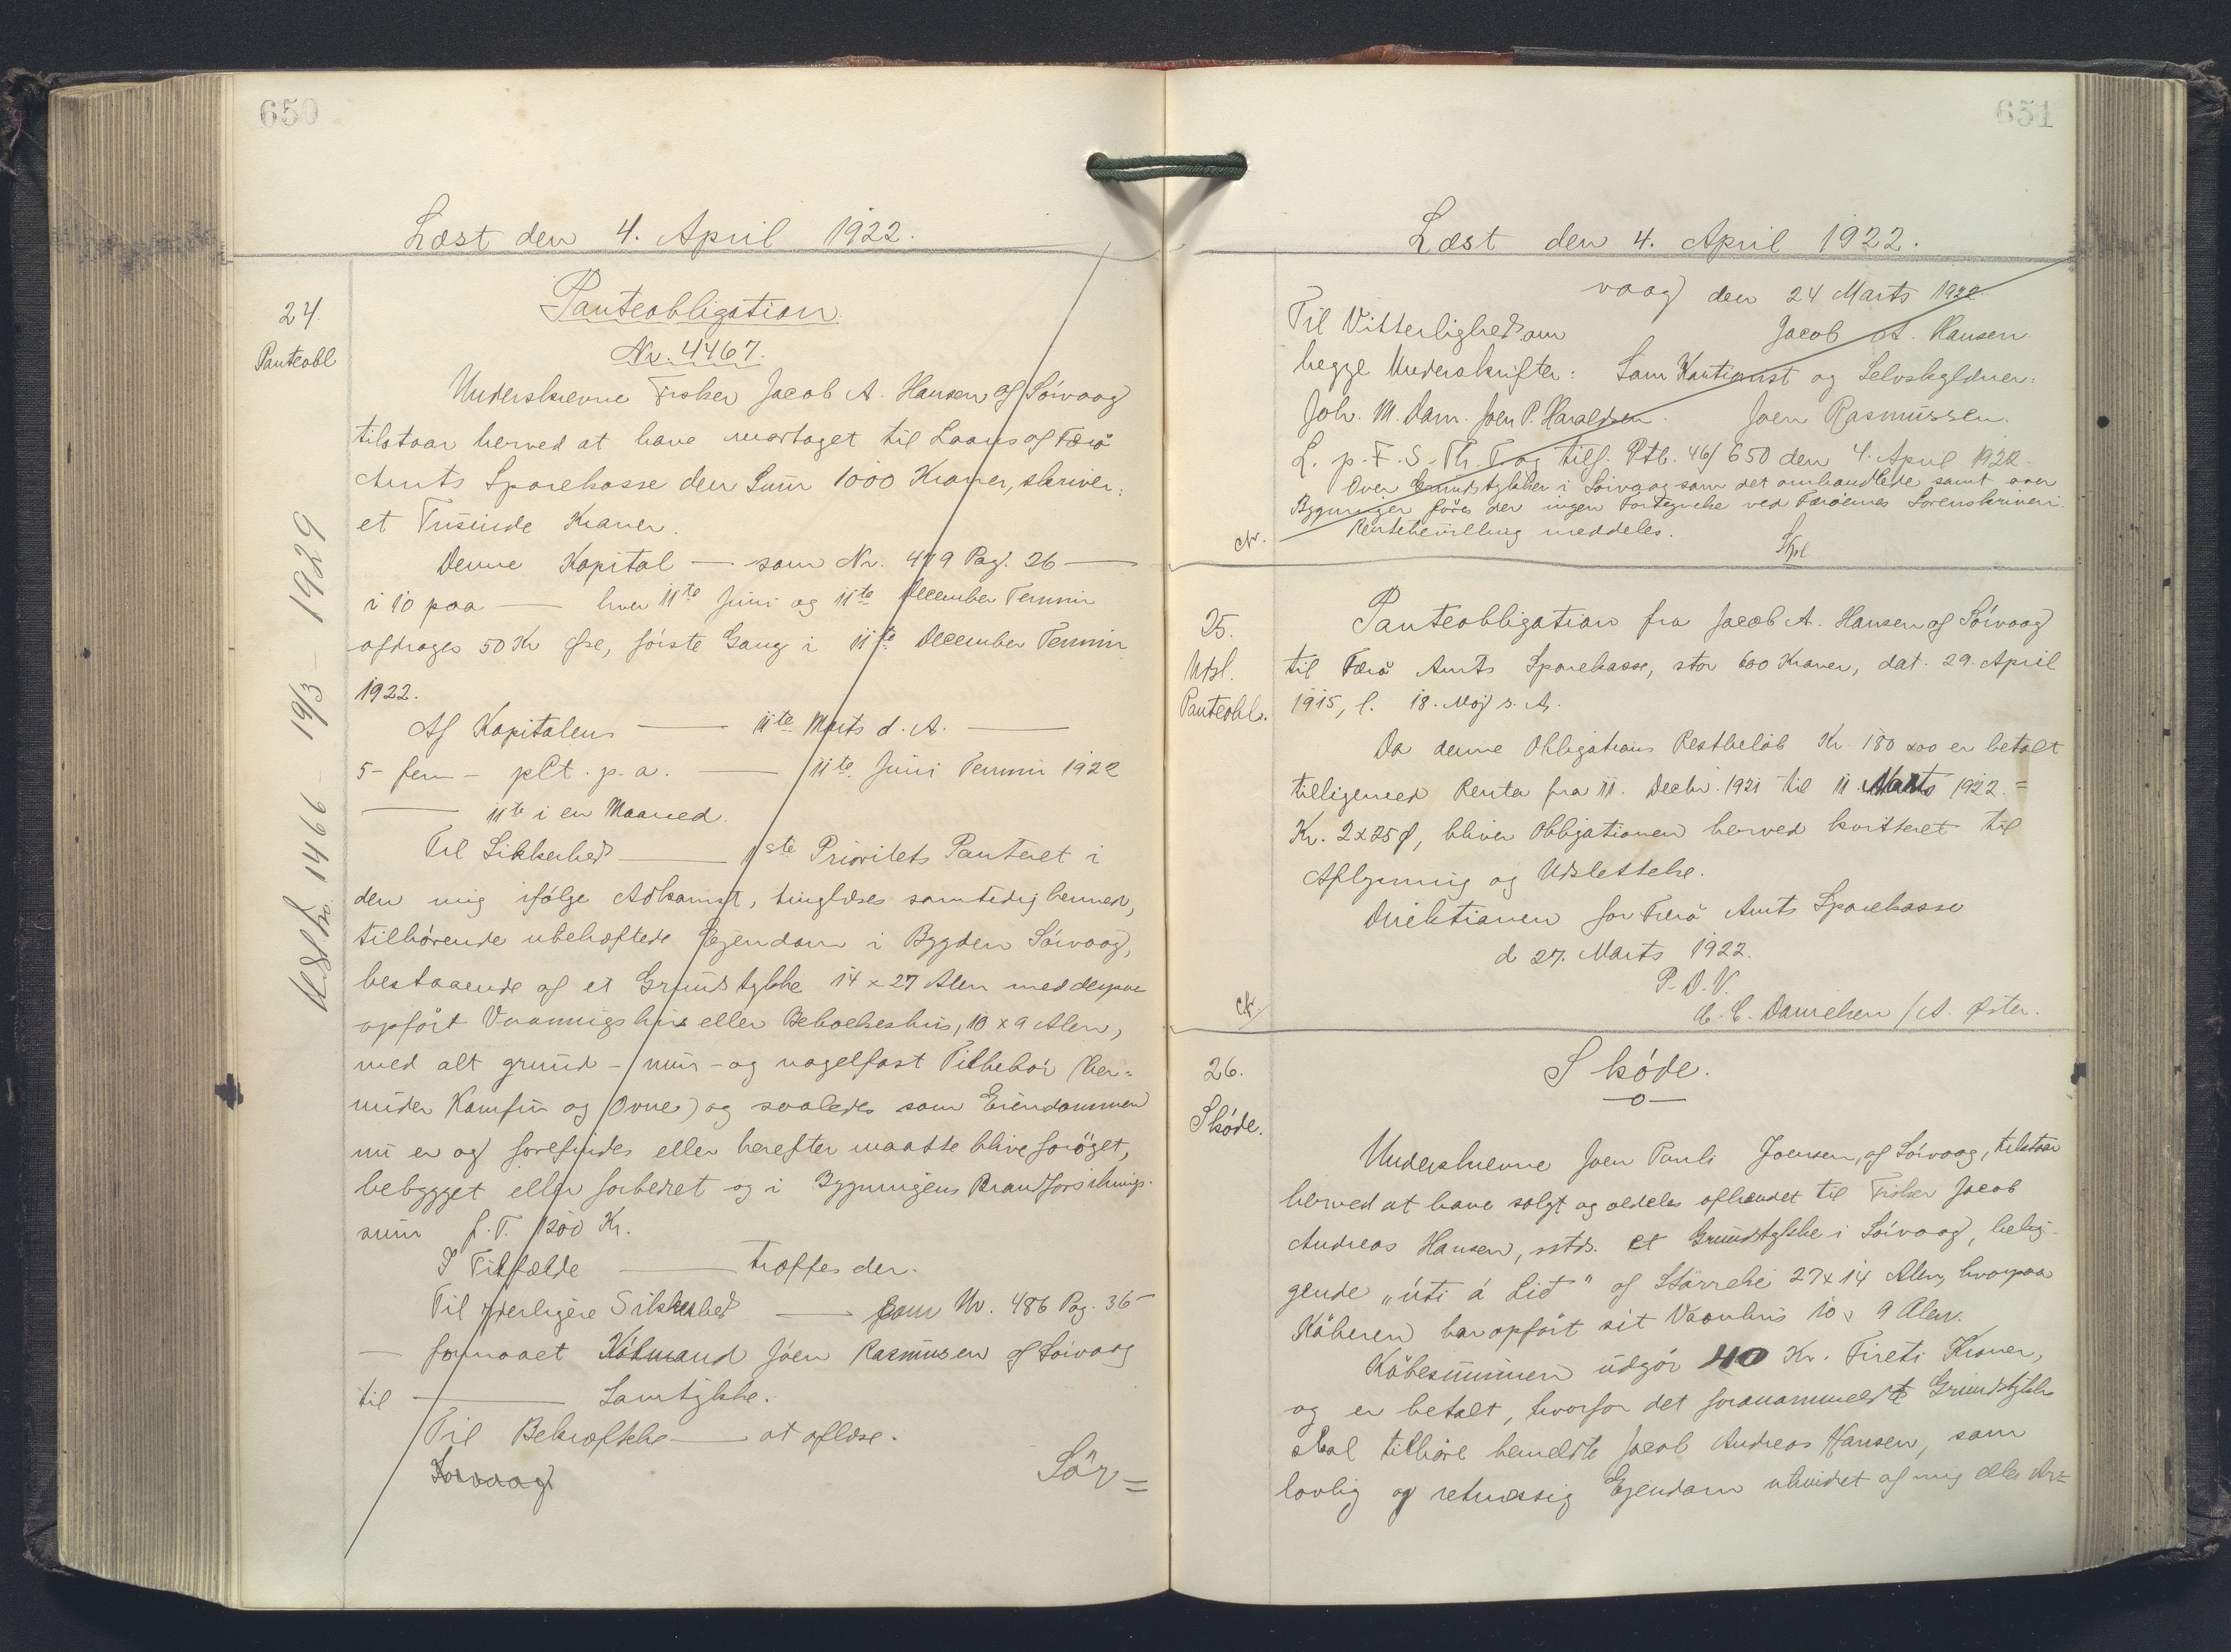 650
Læst den 4. April 1922.
24.
Panteobl
Panteobligation.
Nr. 4467.
Underskrevne Fisker Jacob A. Hansen af Sórvaag
tilstaar herved at have modtaget til Laans af Færø
Amts Sparekasse den Sum 1000 Kroner, skriver:
et Tusinde Kroner.
Denne Kapital — som Nr. 479 Pag. 26 —
i 10 paa — hver 11te Juni og 11te December Termin
afdrages 50 Kr Øre, første Gang i 11te December Termin
1922.
Af Kapitalens — 11te Marts d. A. —
5 - fem - pCt. p. a. — 11te Juni Termin 1922
— 11te i en Maaned.
Til Sikkerhed — 1ste Prioritets Panteret i
den mig ifølge Adkomst, tinglæses samtidig hermed,
tilhørende ubehæftede Ejendom i Bygden Sórvaag,
bestaaende af et Grundstykke 14 x 27 Alen med derpaa
opført Vaaningshus eller Beboelseshus, 10 x 9 Alen,
med alt grund- mur- og nagelfast Tilbehør (her-
under Komfur og Ovne) og saaledes som Eiendommen
nu er og forefindes eller herefter maatte blive forøget,
bebygget eller forbedret og i Bygningens Brandforsikrings-
sum f. T. 1200 Kr.
I Tilfælde — træffes der.
Til yderligere Sikkerhed — som Nr. 486 Pag. 36 -
— formaaet Købmand Jóen Rasmusen af Sórvaag
til — Samtykke.
Til Bekræftelse — at aflæse.
Sorvaag
Sör=
Udsl. Lb. 1466 - 19/3 - 1929
651
Læst den 4. April 1922.
vaag den 24 Marts 1922.
Til Vitterlighed om Jacob A. Hansen
begge Underskrifter: Som Kautionist og Selvskyldner:
Joh. M. Dam. Joen P. Haraldsen. Joen Rasmussen.
L. p. F. S. Th. T. og tilf. Ptb. 46/650 den 4. April 1922.
Over Grundstykker i Sórvaag som det omhandlede samt over
Bygninger føres der ingen Fortegnelse ved Færøernes Sorenskriveri.
Rentebevilling meddeles.
25.
Udsl.
Panteobl.
Panteobligation fra Jacob A. Hansen af Sórvaag
til Færø Amts Sparekasse, stor 600 Kroner, dat. 29. April
1915, l. 18. Maj s. A.
Da denne Obligations Restbeløb Kr. 180 x 00 er betalt
tilligemed Renta fra 11. Decbr. 1921 til 11. Marts 1922 =
Kr. 2 x 25 Ø, bliver Obligationen herved kvitteret til
Aflysning og Udslettelse.
Direktionen for Færø Amts Sparekasse
d 27. Marts 1922.
P. D. V.
C. C. Danielsen / A. Øster.
26.
Skóde.
Skóde.
—o—
Underskrevne Joen Pauli Joensen, af Sórvaag, tilstaar
herved at have solgt og aldeles afhændet til Fisker Jacob
Andreas Hansen, sstds. et Grundstykke i Sórvaag, belig-
gende „úti á Lið" af Størrelse 27 x 14 Alen, hvorpaa
Køberen har opført sit Vaanhus 10 x 9 Alen.
Købesummen udgør 40 Kr. Fireti Kroner,
og er betalt, hvorfor det foranammeldte Grundstykke
skal tilhøre bemeldte Jacob Andreas Hansen, som
lovlig og retmæssig Ejendom uhindret af mig eller Ar=